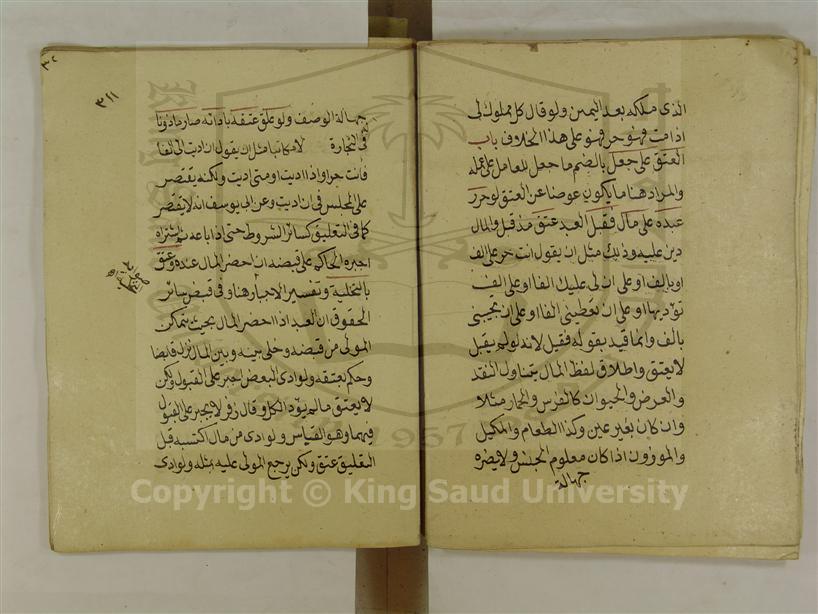 الذى ملكه بعد اليمين ولو قال كل مملوك لى
اذا مت فهو حر فهو على هذا الخلاف باب
العتق على جعل بالضم ما جعل للعامل على عمله
والمراد هنا ما يكون عوضا عن العتق لو حرر
عبده على مال فقبل العبد عتق مذ قبل والمال
دين عليه وذلك مثل ان يقول انت حر على الف
او بالف او على ان لى عليك الفا او على الف
تؤديها او على ان تعطينى الفا او على ان تجيئنى
بالف وانما قيد بقوله فقبل لانه لو لم يقبل
لا يعتق واطلاق لفظ المال يتناول النقد
والعرض والحيوان كالفرس والحمار مثلا
وان كان بغير عين وكذا الطعام والمكيل
والموزون اذا كان معلوم الجنس ولا يضره
جهالة
٣١١
جهالة الوصف ولو علق عتقه باداته صار ماذونا
فى التجارة لا مكاتبا مثل ان يقول ان اديت الى الفا
فانت حر او اذا اديت او متى اديت ولكنه يقتصر
على المجلس فى ان اديت وعن ابى يوسف انه لا يقتصر
كما فى التعليق كسائر الشروط حتى اذا باعه ثم اشتراه
اجبره الحاكم على قبضه ان احضر المال عنده وعتق
بالتخلية وتفسير الاجبار هنا وفى قبض سائر
الحقوق ان العبد اذا احضر المال بحيث يتمكن
المولى من قبضه وخلى بينه وبين المال نزل قابضا
وحكم بعتقه ولو ادى البعض اجبر على القبول ولكن
لا يعتق ما لم يؤد الكل وقال زفر لا يجبر على القبول
فيهما وهو القياس ولو ادى من مال اكتسبه قبل
التعليق عتق ولكن يرجع المولى عليه بمثله ولو ادى
Copyright © King Saud University
1957